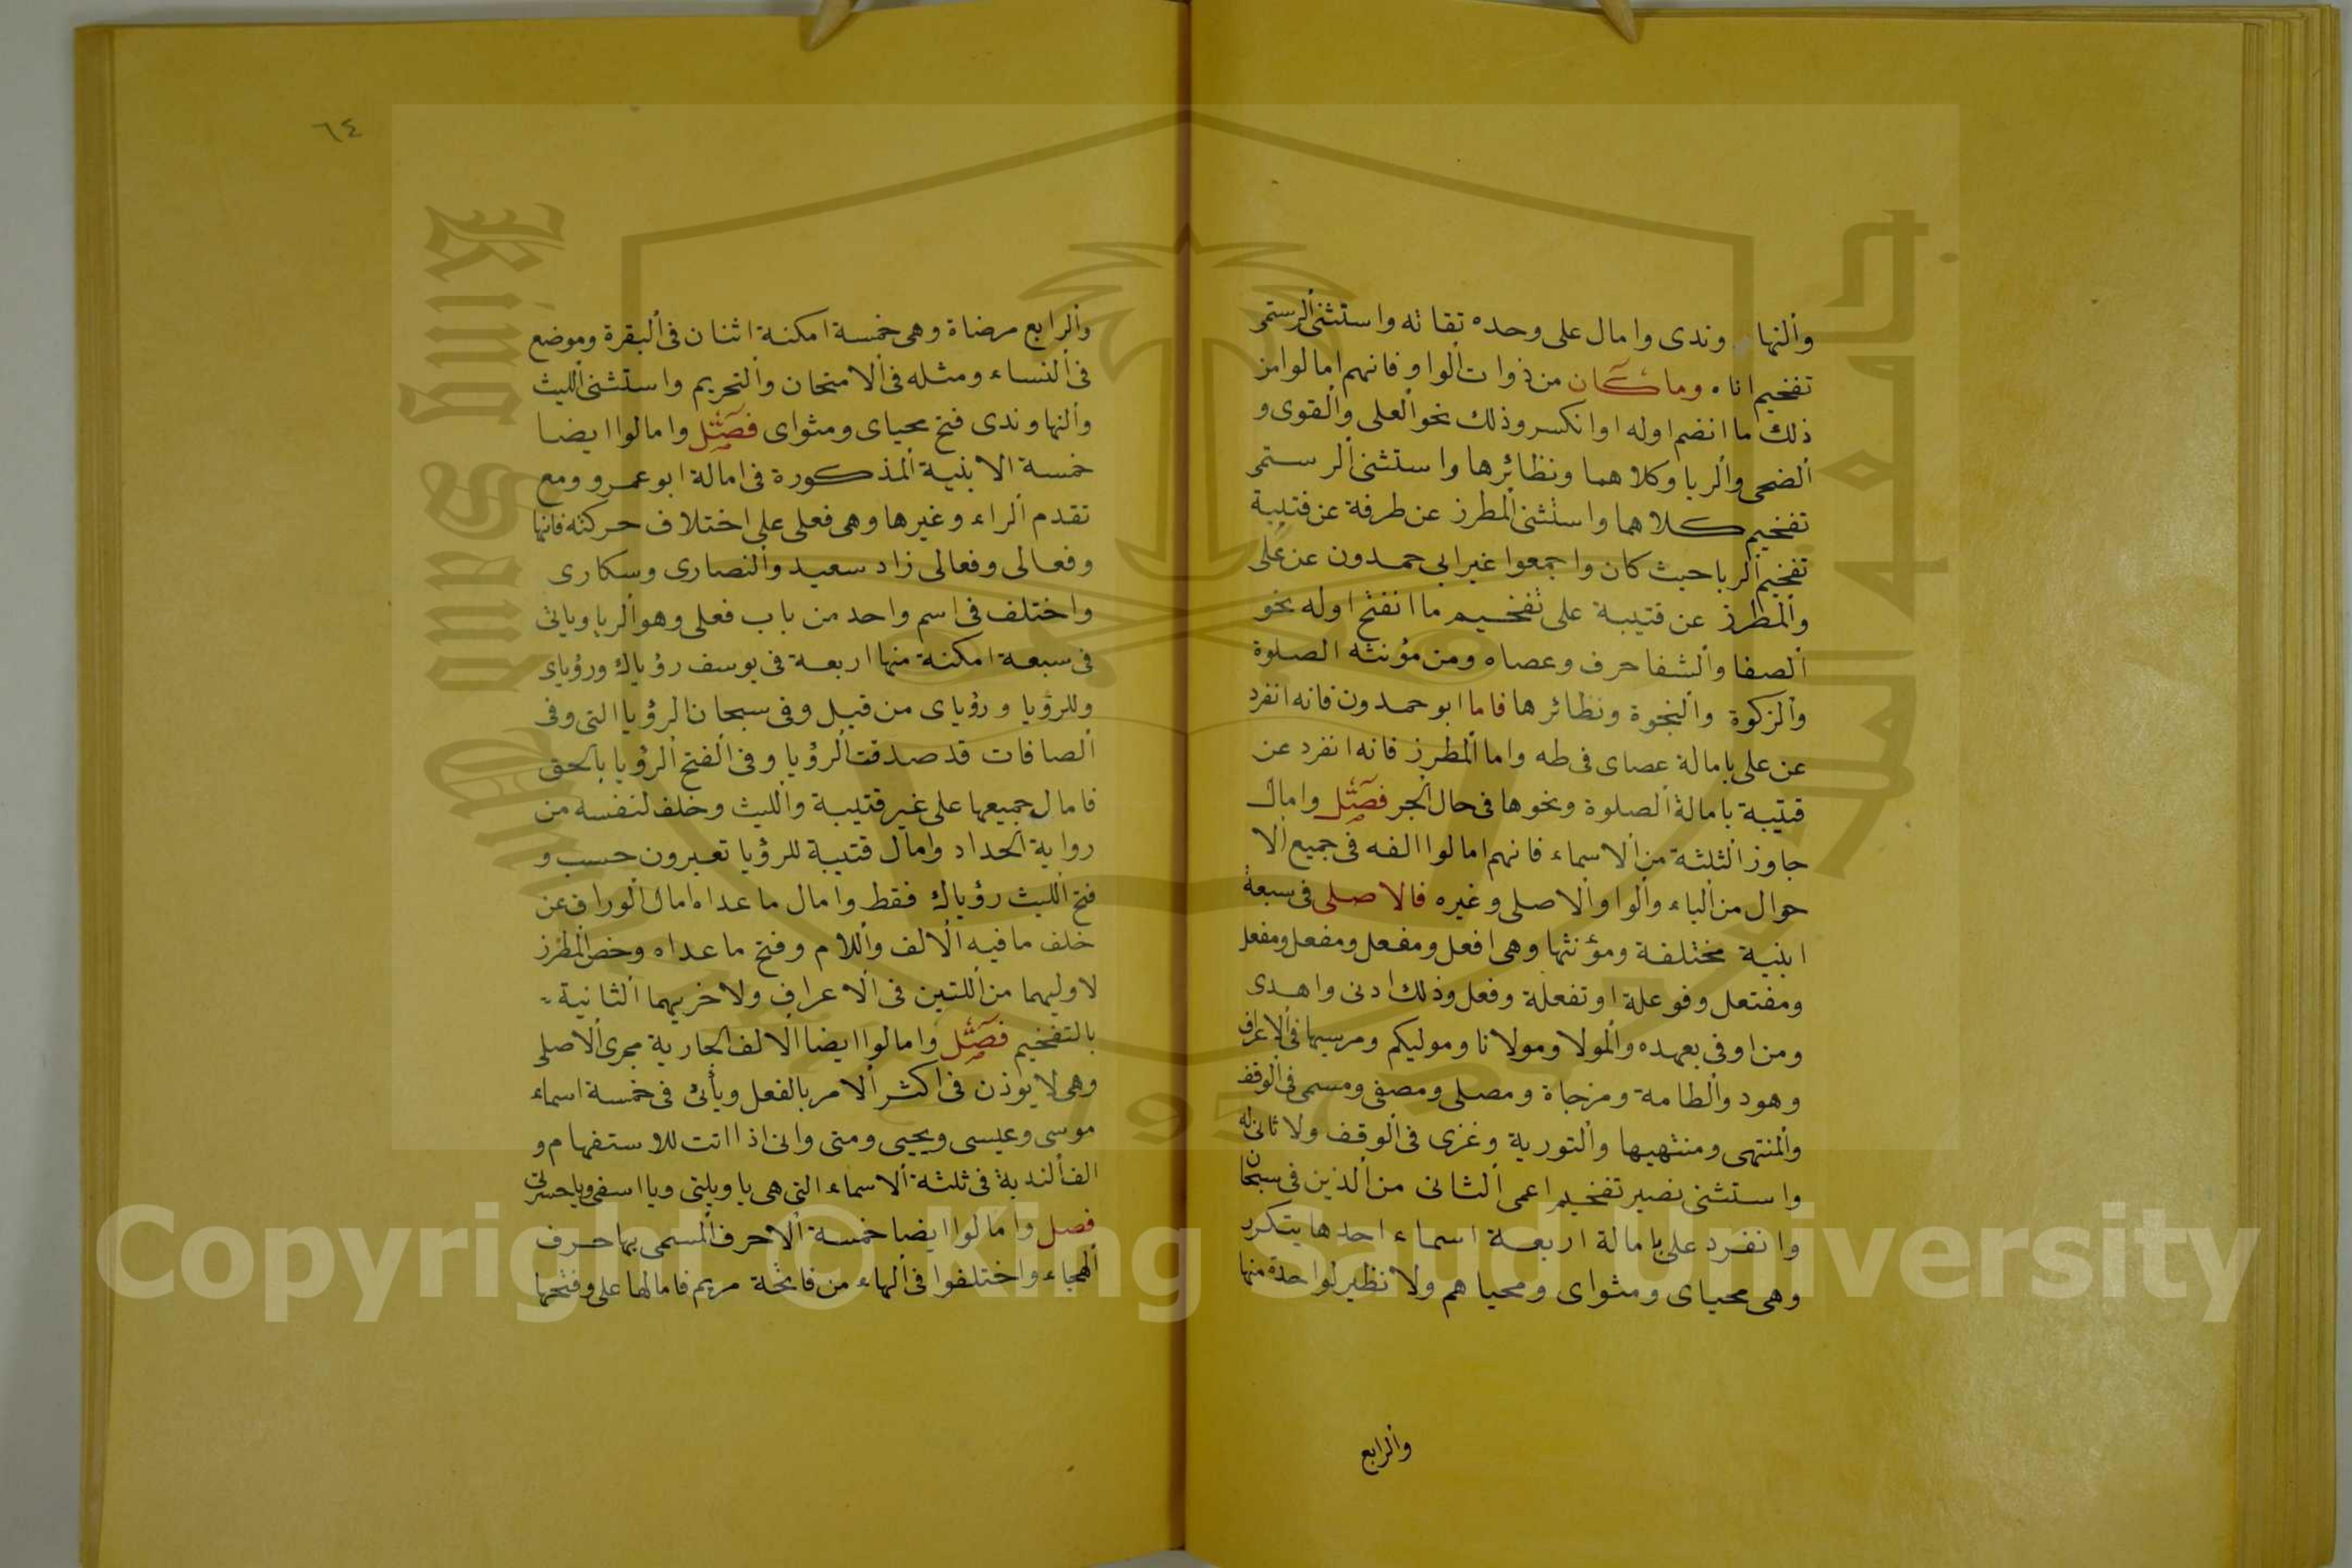 والنهاوندى وامال على وحده تقاته واستثنى الرستمى
تفخيم اناه وما كان من ذوات الواو فانهم امالوا من
ذلك ما انضم اوله او انكسر وذلك نحو العلى والقوى و
الضحى والربا وكلاهما ونظائرها واستثنى الرستمى
تفخيم كلاهما واستثنى المطرز عن طرفة عن قتيبة
تفخيم الربا حيث كان واجمعوا غير ابى حمدون عن على
والمطرز عن قتيبة على تفخيم ما انفتح اوله نحو
الصفا والشفا حرف وعصاه ومن مؤنثه الصلوة
والزكوة والنجوة ونظائرها فاما ابو حمدون فانه انفرد
عن على بامالة عصاى فى طه واما المطرز فانه انفرد عن
قتيبة بامالة الصلوة ونحوها فى حال الجر فصل وامال
جاوز الثلثة من الاسماء فانهم امالوا الفه فى جميع الا
حوال من الياء والواو الاصلى وغيره فالاصلى فى سبعة
ابنية مختلفة ومؤنثها وهى افعل ومفعل ومفعل ومفعل
ومفتعل وفوعلة او تفعلة وفعل وذلك ادنى واهدى
ومن اوفى بعهده والمولا ومولانا وموليكم ومرسيها فى الاعراف
وهود والطامة ومزجاة ومصلى ومصفى ومسمى فى الوقف
والمنتهى ومنتهيها والتورية وغزى فى الوقف ولا ثانى له
واستثنى نصير تفخيم اعمى الثانى من الذين فى سبحان
وانفرد على بامالة اربعة اسماء احدها يتكرر
وهى محياى ومثواى ومحياهم ولا نظير لواحدة منها
والرابع
٦٤
والرابع مرضاة وهى خمسة امكنة اثنان فى البقرة وموضع
فى النساء ومثله فى الامتحان والتحريم واستثنى الليث
والنهاوندى فتح محياى ومثواى فصل وامالوا ايضا
خمسة الابنية المذكورة فى امالة ابو عمرو ومع
تقدم الراء وغيرها وهى فعلى على اختلاف حركته فانها
وفعالى وفعالى زاد سعيد والنصارى وسكارى
واختلف فى اسم واحد من باب فعلى وهو الريا وياتى
فى سبعة امكنة منها اربعة فى يوسف رؤياك ورؤياى
وللرؤيا ورؤياى من قبل وفى سبحان الرؤيا التى وفى
الصافات قد صدقت الرؤيا وفى الفتح الرؤيا بالحق
فامال جميعها على غير قتيبة والليث وخلف لنفسه من
رواية الحداد وامال قتيبة للرؤيا تعبرون حسب و
فتح الليث رؤياك فقط وامال ما عداه امال الوراق عن
خلف ما فيه الالف واللام وفتح ما عداه وخص المطرز
لاوليهما من اللتين فى الاعراف ولاخريهما الثانية
بالتفخيم فصل وامالوا ايضا الالف الجارية مجرى الاصلى
وهى لا يوذن فى اكثر الامر بالفعل ويأتى فى خمسة اسماء
موسى وعيسى ويحيى ومتى وانى اذا اتت للاستفهام و
الف الندبة فى ثلثة الاسماء التى هى يا ويلتى ويا اسفى ويا حسرتى
فصل وامالوا ايضا خمسة الاحرف المسمى بها حرف
الهجاء واختلفوا فى الهاء من فاتحة مريم فامالها على وفتحها
King Saud University
1957
Copyright © King Saud University